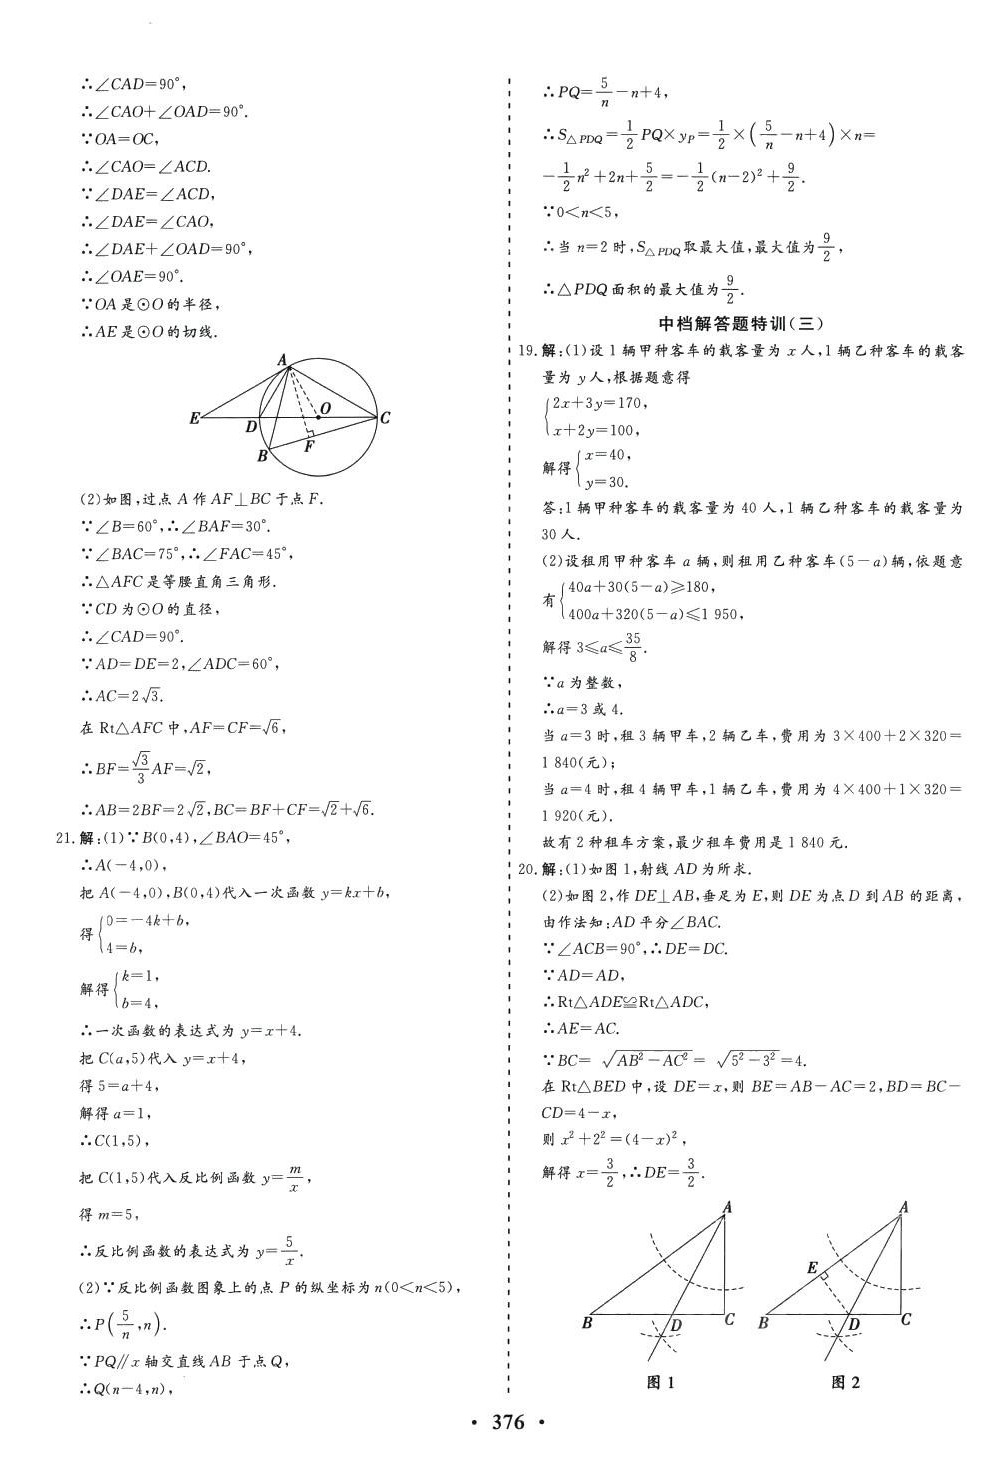 ∴∠CAD=90°,
∴∠CAO+∠OAD=90°.
∵OA=OC,
∴∠CAO=∠ACD.
∵∠DAE=∠ACD,
∴∠DAE=∠CAO,
∴∠DAE+∠OAD=90°,
∴∠OAE=90°.
∵OA是⊙O的半径,
∴AE是⊙O的切线.
A
E
D
O
C
B
F
(2)如图,过点A作AF⊥BC于点F.
∵∠B=60°,∴∠BAF=30°.
∵∠BAC=75°,∴∠FAC=45°,
∴△AFC是等腰直角三角形.
∵CD为⊙O的直径,
∴∠CAD=90°.
∵AD=DE=2,∠ADC=60°,
∴AC=2√3.
在Rt△AFC中,AF=CF=√6,
∴BF=√3/3 AF=√2,
∴AB=2BF=2√2,BC=BF+CF=√2+√6.
21.解:(1)∵B(0,4),∠BAO=45°,
∴A(-4,0),
把A(-4,0),B(0,4)代入一次函数y=kx+b,
得{0=-4k+b,
4=b,
解得{k=1,
b=4,
∴一次函数的表达式为y=x+4.
把C(a,5)代入y=x+4,
得5=a+4,
解得a=1,
∴C(1,5),
把C(1,5)代入反比例函数y=m/x,
得m=5,
∴反比例函数的表达式为y=5/x.
(2)∵反比例函数图象上的点P的纵坐标为n(0<n<5),
∴P(5/n,n).
∵PQ∥x轴交直线AB于点Q,
∴Q(n-4,n),
∴PQ=5/n-n+4,
∴S△PDQ=1/2 PQ×yP=1/2×(5/n-n+4)×n=
-1/2 n²+2n+5/2=-1/2(n-2)²+9/2.
∵0<n<5,
∴当n=2时,S△PDQ取最大值,最大值为9/2,
∴△PDQ面积的最大值为9/2.
中档解答题特训(三)
19.解:(1)设1辆甲种客车的载客量为x人,1辆乙种客车的载客
量为y人,根据题意得
{2x+3y=170,
x+2y=100,
解得{x=40,
y=30.
答:1辆甲种客车的载客量为40人,1辆乙种客车的载客量为
30人.
(2)设租用甲种客车a辆,则租用乙种客车(5-a)辆,依题意
有{40a+30(5-a)≥180,
400a+320(5-a)≤1 950,
解得3≤a≤35/8.
∵a为整数,
∴a=3或4.
当a=3时,租3辆甲车,2辆乙车,费用为3×400+2×320=
1 840(元);
当a=4时,租4辆甲车,1辆乙车,费用为4×400+1×320=
1 920(元).
故有2种租车方案,最少租车费用是1 840元.
20.解:(1)如图1,射线AD为所求.
(2)如图2,作DE⊥AB,垂足为E,则DE为点D到AB的距离,
由作法知:AD平分∠BAC.
∵∠ACB=90°,∴DE=DC.
∵AD=AD,
∴Rt△ADE≌Rt△ADC,
∴AE=AC.
∵BC=√(AB²-AC²)=√(5²-3²)=4.
在Rt△BED中,设DE=x,则BE=AB-AC=2,BD=BC-
CD=4-x,
则x²+2²=(4-x)²,
解得x=3/2,∴DE=3/2.
A
B
D
C
图1
A
E
B
D
C
图2
• 376 •